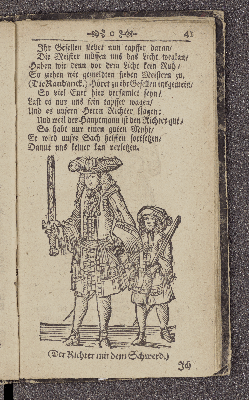 41
Ihr Gesellen ziehet nun tapffer daran/
Die Meister müssen uns das Liecht
Haben wir denn vor dem Licht kein Ruh/
So gehen wir gemeldten lieben Meistern zu.
Höret zu ihr Gesellen insgemein/
So viel Eurt hier versamlet seyn/
Last es nur uns fein tapffer wagen/
Und es unsern Herrn Richter klagen;
Und weil der Hauptmann ist den Richter gut/
So habt nur einen guten Muth/
Er wird unsre Sach helffen fortsetzen/
Damit uns keiner kan verletzen.
(Der Richter mit dem Schwerd.)
Ich